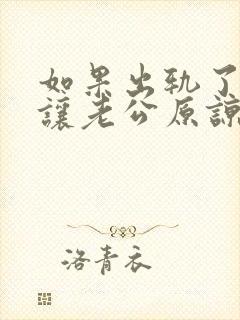 如果出轨了
讓老公原諒
洛青衣